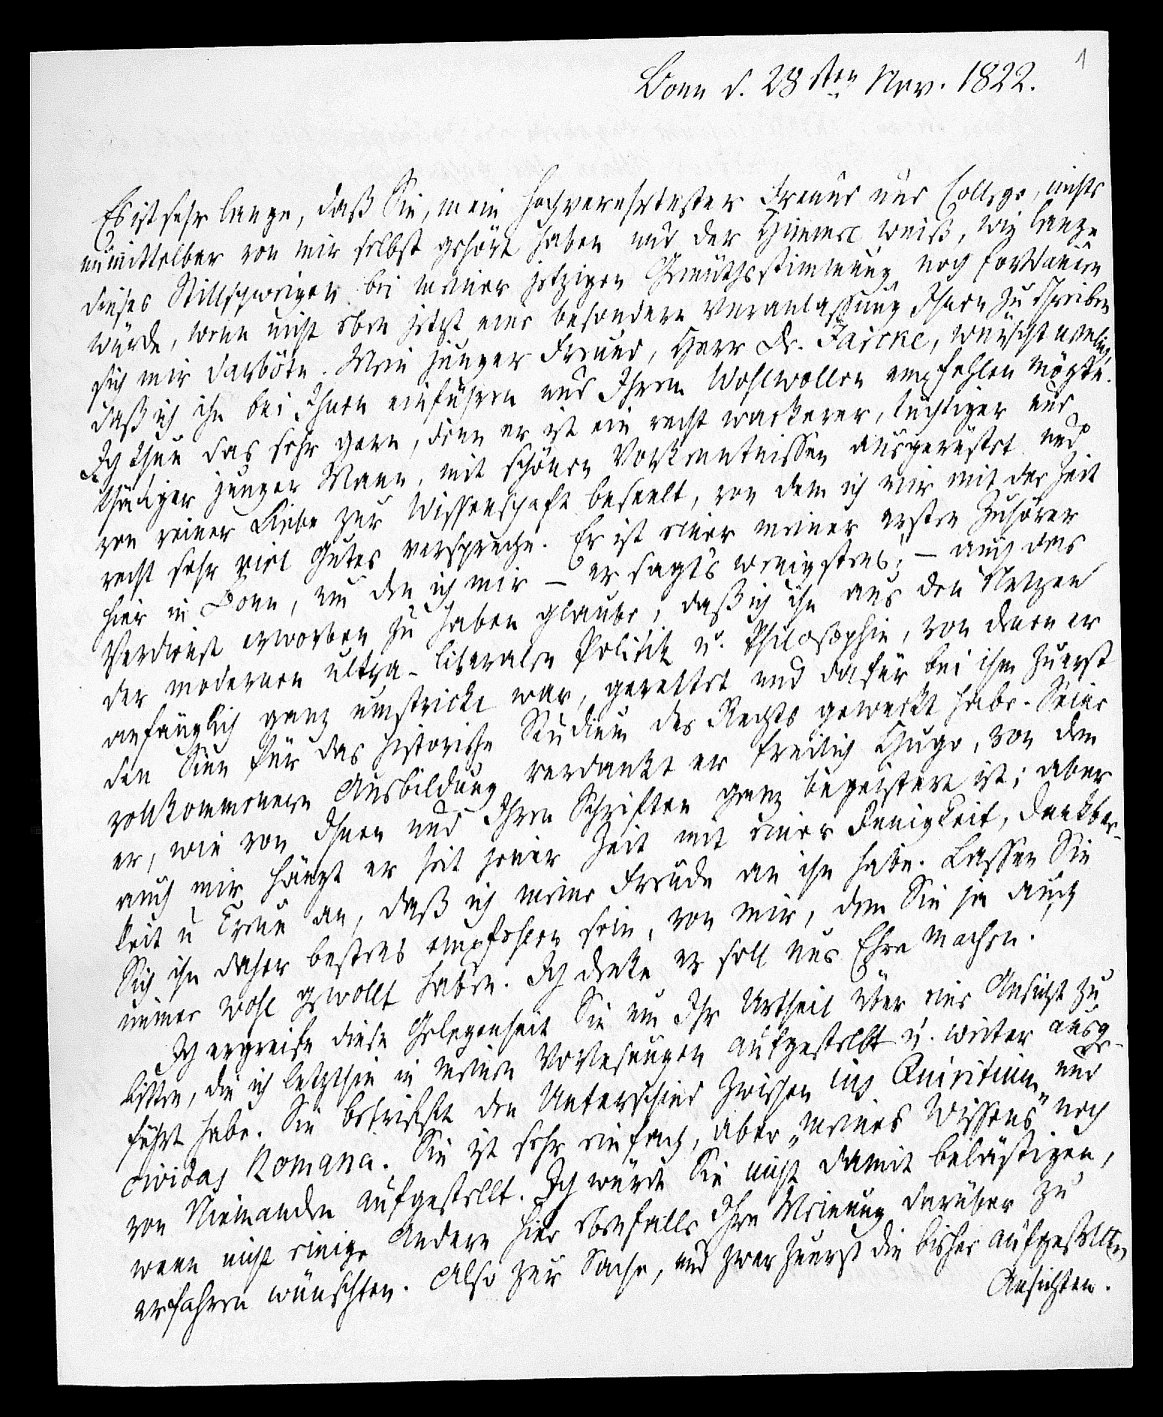 1
Bonn d. 28sten Nov. 1822.
Es ist sehr lange, daß Sie, mein hochverehrtester Freund und College, nichts
unmittelbar von mir selbst gehört haben und der Himmel weiß, wie lange
dieses Stillschweigen bei meiner jetzigen Gemüthsstimmung noch fortdauern
würde, wenn nicht eben jetzt eine besondere Veranlassung Ihnen zu schreiben
sich mir darböte. Mein junger Freund, Herr Dr. Jarcke, wünscht nemlich,
daß ich ihn bei Ihnen einführen und Ihrem Wohlwollen empfehlen möchte.
Ich thue das sehr gern, denn er ist ein recht wackerer, tüchtiger und
thätiger junger Mann, mit schönen Vorkenntnissen ausgerüstet und
von reiner Liebe zur Wissenschaft beseelt, von dem ich mir mit der Zeit
recht sehr viel Gutes verspreche. Er ist einer meiner ersten Zuhörer
hier in Bonn, um den ich mir – er sagt's wenigstens; – auch das
Verdienst erworben zu haben glaube, daß ich ihn aus den Netzen
der modernen ultra-liberalen Politik u. Philosophie, von denen er
anfänglich ganz umstrickt war, gerettet und dafür bei ihm zuerst
den Sinn für das historische Studium des Rechts geweckt habe. Seine
vollkommenere Ausbildung verdankt er freilich Hugo, von dem
er, wie von Ihnen und Ihren Schriften ganz begeistert ist; aber
auch mir hängt er seit jener Zeit mit einer Innigkeit, Dankbar-
keit u Treue an, daß ich meine Freude an ihm habe. Lassen Sie
Sich ihn daher bestens empfohlen sein, von mir, dem Sie ja auch
immer wohl gewollt haben. Ich denke er soll uns Ehre machen.
Ich ergreife diese Gelegenheit Sie um Ihr Urtheil über eine Ansicht zu
bitten, die ich letzthin in meinen Vorlesungen aufgestellt u. weiter ausge-
führt habe. Sie betrifft den Unterschied zwischen ius Quiritium und
civitas Romana. Sie ist sehr einfach, aber „meines Wissens" noch
von Niemanden aufgestellt. Ich würde Sie nicht damit belästigen,
wenn nicht einige Andere hier ebenfalls Ihre Meinung darüber zu
erfahren wünschten. Also zur Sache, und zwar zuerst die bisher aufgestellten
Ansichten.